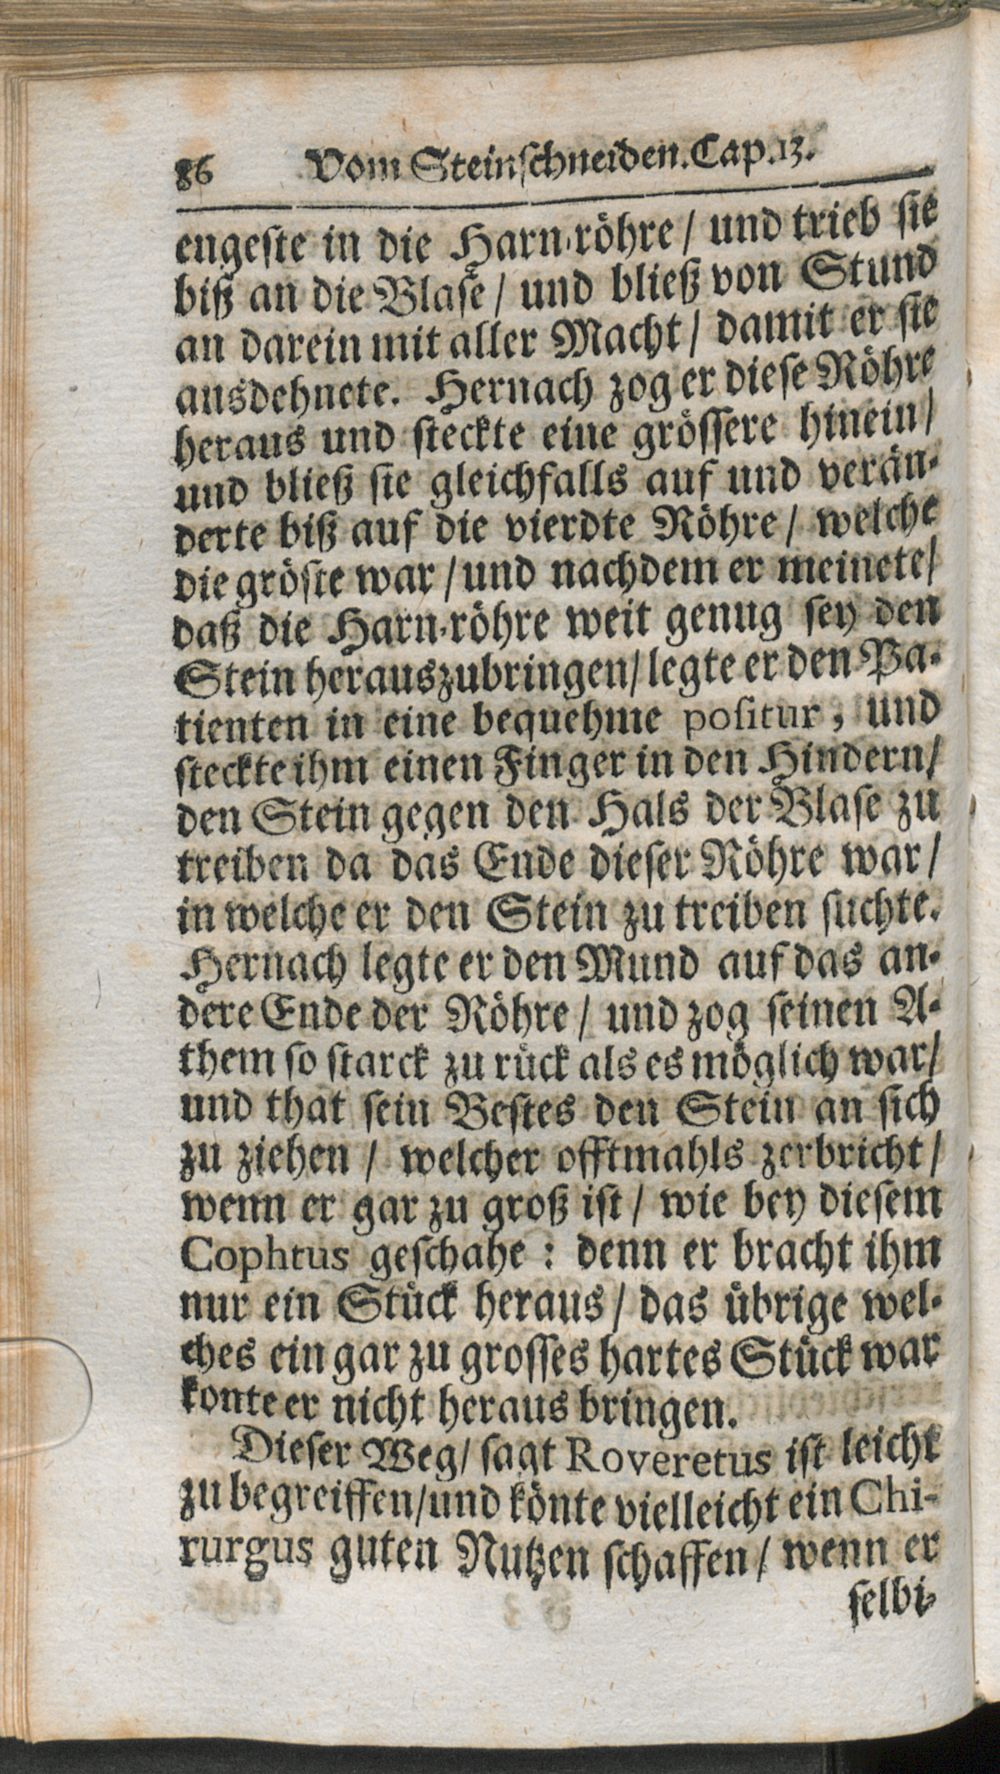 86 Vom Steinschneiden. Cap. 13.
engeste in die Harn-röhre / und trieb sie
biß an die Blase / und bließ von Stund
an darein mit aller Macht / damit er sie
ausdehnete. Hernach zog er diese Röhre
heraus und steckte eine grössere hinein /
und bließ sie gleichfalls auf und verän-
derte biß auf die vierdte Röhre / welche
die gröste war / und nachdem er meinete /
daß die Harn-röhre weit genug sey den
Stein herauszubringen / legte er den Pa-
tienten in eine bequehme positur, und
steckte ihm einen Finger in den Hindern /
den Stein gegen den Hals der Blase zu
treiben da das Ende dieser Röhre war /
in welche er den Stein zu treiben suchte.
Hernach legte er den Mund auf das an-
dere Ende der Röhre / und zog seinen A-
them so starck zu rück als es möglich war /
und that sein Bestes den Stein an sich
zu ziehen / welcher offtmahls zerbricht /
wenn er gar zu groß ist / wie bey diesem
Cophtus geschahe : denn er bracht ihm
nur ein Stück heraus / das übrige wel-
ches ein gar zu grosses hartes Stück war
konte er nicht heraus bringen.
Dieser Weg / sagt Roveretus ist leicht
zu begreiffen / und könte vielleicht ein Chi-
rurgus guten Nutzen schaffen / wenn er
selbi-